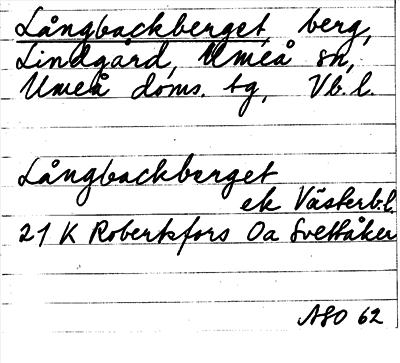 Långbackberget, berg,
Lindgård, Umeå sn,
Umeå doms. tg, Vb. l.
Långbackberget
ek Västerb.l.
21 K Robertsfors 0a Svettåker
ASO 62